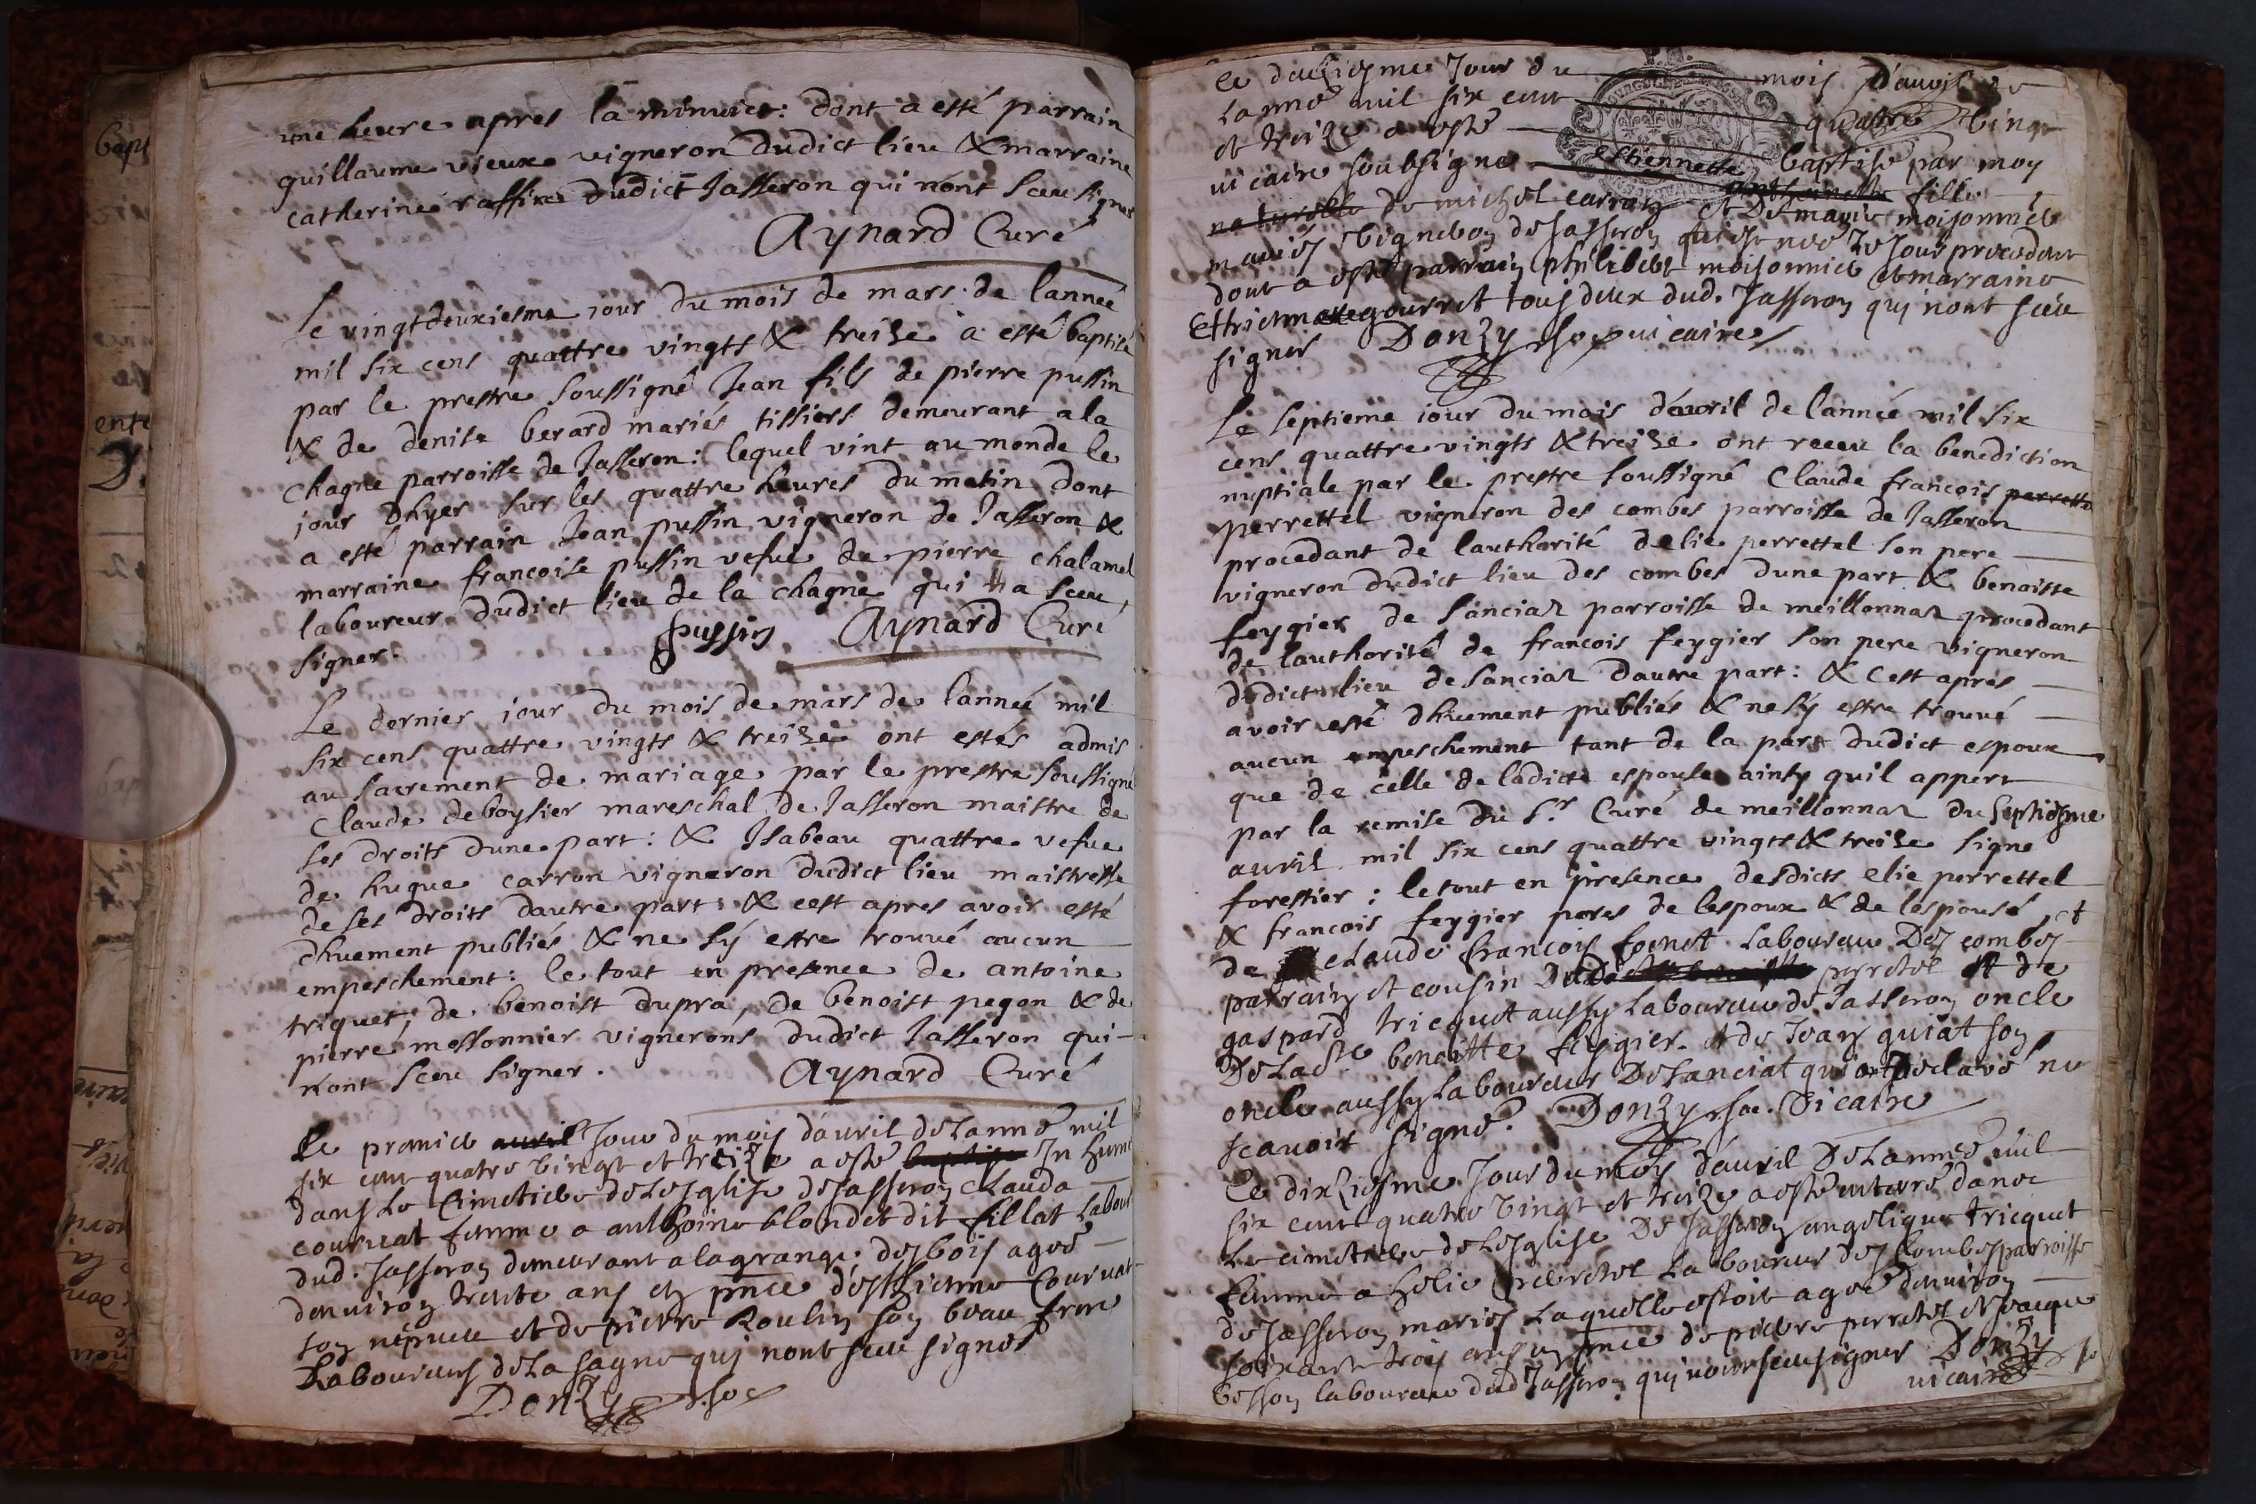 une heure apres la minuict: dont a esté parrain
guillaume vieux vigneron dudict lieu & marraine
catherine raffin dudict Jasseron qui n'ont sceu signer
Aynard Curé
Le vingtdeuxiesme jour du mois de mars de lannée
mil six cens quattre vingts & treize a esté baptisé
par le prestre soussigné Jean fils de pierre pussin
& de denise berard mariés tissiers demeurant a la
Chagne parroisse de Jasseron: lequel vint au monde le
jour d'hyer sur les quattre heures du matin dont
a esté parrain Jean pussin vigneron de Jasseron &
marraine francoise pussin vefue de pierre chalamel
laboureur dudict lieu de la chagne qui n'a sceu
signer. pussin Aynard Curé
Le dernier jour du mois de mars de lannée mil
six cens quattre vingts & treize ont estés admis
au sacrement de mariage par le prestre soussigné
Claude deboysier mareschal de Jasseron maistre de
ses droits dune part: & Isabeau quattre vefue
de hugue carron vigneron dudict lieu maistresse
de ses droits dautre part: & cest apres avoir esté
dhuement publiés & ne s'y estre trouvé aucun
empeschement: le tout en presence de antoine
triquet, de benoist dupra, de benoist pegon & de
pierre messonnier vignerons dudict Jasseron qui
n'ont sceu signer. Aynard Curé
Le premier auril Jour du mois dauril de Lanné mil
six cent quatre vingt et treize a esté baptise In hume
dans Le Cimetiere de Lesglise de Jasseron Clauda
couruat femme a anthoine blondet dit fillat Labour
dud. Jasseron demeurant a lagrange des bois agee
denuiron trente ans en pnce desthienne Couruat
son nepueu et de pierre Roulin son beau frere
Laboureurs de La sagne qui nont sceu signer
Donzy soc
Le deuziesme Jour du mois dauril
Lanné mil six cent quatre vingt
et treize a esté baptisé par moy
vicaire soubsigné estiennette fille
naturelle de michel carron et De marie moisonnier
mariés vigneron de Jasseron qui est nee Le Jour precedent
dont a esté parrain philibert moisonnier et marraine
gourret tous deux dud. Jasseron qui nont sceu
signer Donzy soc vicaire
Le septieme jour du mois d'auvril de lannée mil six
cens quattre vingts & treize ont receu la benediction
nuptiale par le prestre soussigné Claude francois perrette
perrettel vigneron des combes parroisse de Jasseron
procedant de lauthorité delie perrettel son pere
vigneron dudict lieu des combes dune part & benoitte
feygier de sanciaz parroisse de meillonnaz procedant
de lauthorité de francois feygier son pere vigneron
dudict lieu de sanciaz dautre part: & cest apres
avoir esté dhuement publiés & ne s'y estre trouvé
aucun empeschement tant de la part dudict espoux
que de celle de ladicte espouse ainsy quil appert
par la remise du Sr. Curé de meillonnaz du septiesme
auril mil six cens quattre vingts & treize signe
forestier: le tout en presence desdicts elie perrettel
& francois feygier peres de lespoux & de lespouse, et
de Claude francois foenet Laboureur Des combes
parrain et cousin Dud perretel et de
gaspard tricquet aussy Laboureur de Jasseron oncle
De Lade benoitte feygier. et de Jean guiat son
oncle aussy Laboureur De Lanciat qui ont declaré ne
scauoir signé. Donzy soc. Vicaire
Le dixziesme Jour du mois dauril De Lannee mil
six cent quatre vingt et treize a esté enterré dans
Le cimetiere de Lesglise De Jasseron angelique tricquet
femme a helie perretel Laboureur des Combes parroisse
de Jasseron mariés Laquelle estoit agee denuiron
soixante trois ans en pnce de pierre perretel et Jacque
besson laboureur dud Jasseron qui nont sceu signer Donzy
vicaire